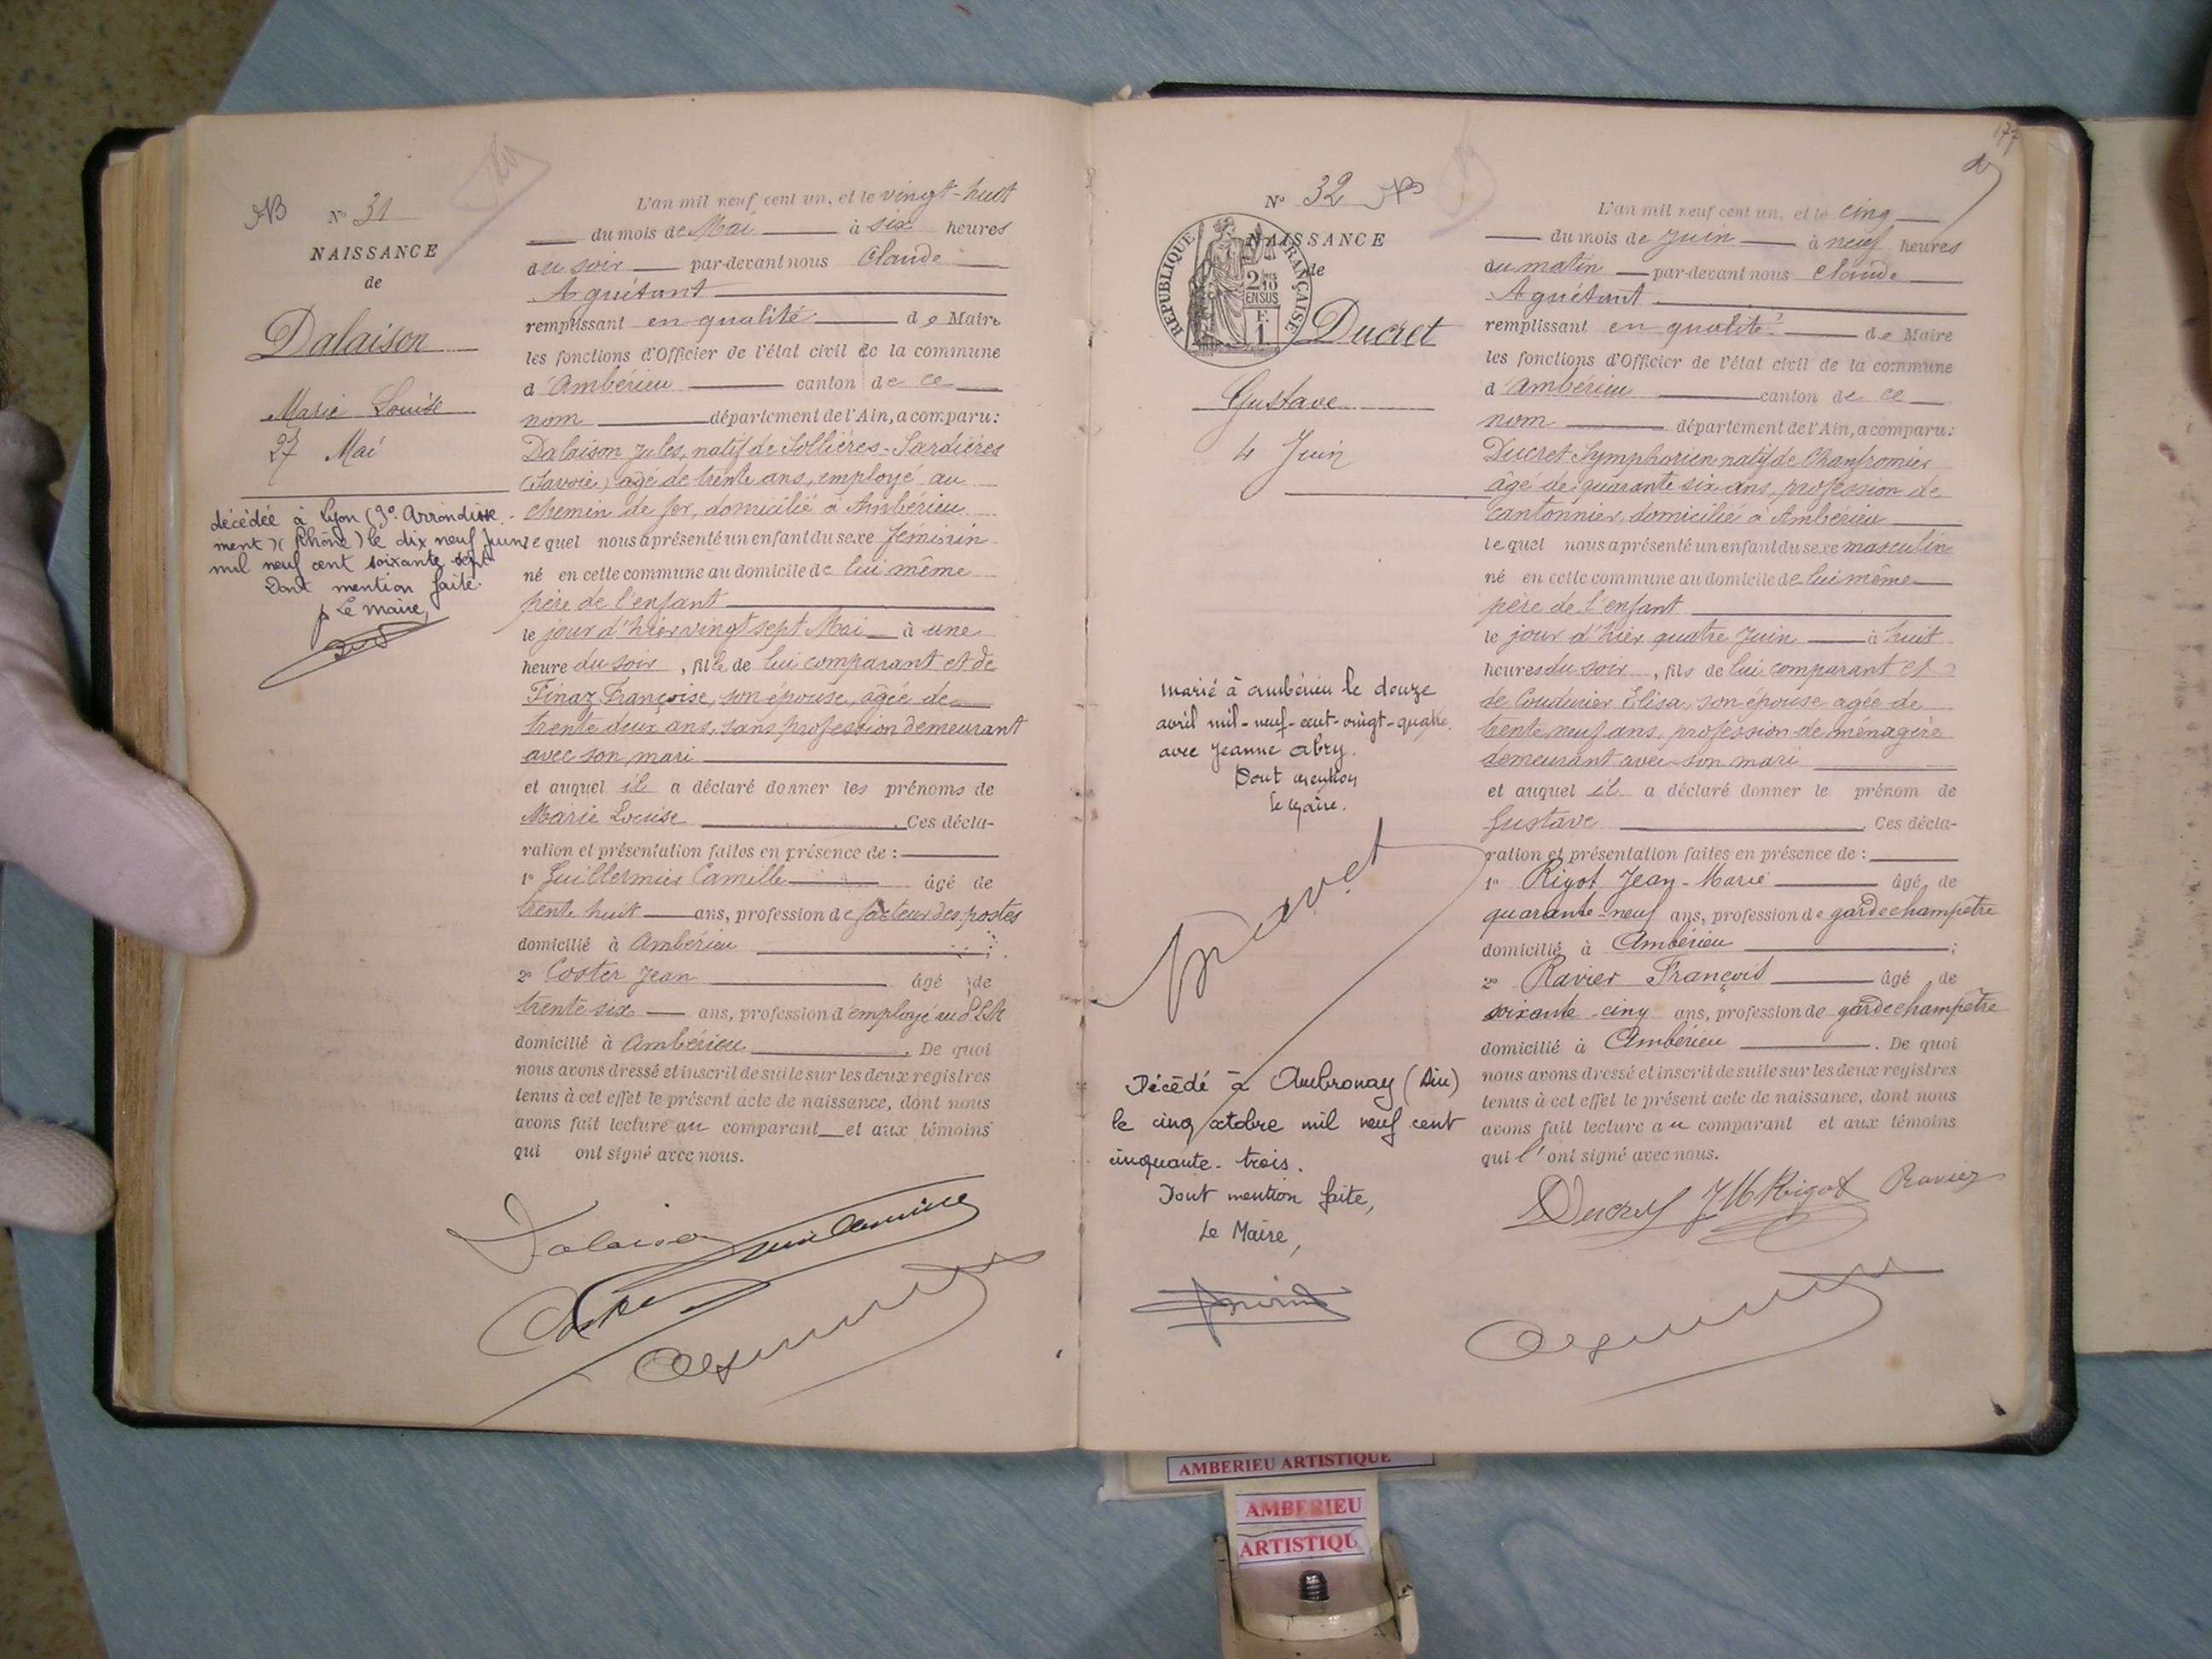 N° 31
NAISSANCE
de
Dalaison
Marie Louise
27 Mai
décédée à Lyon (9e Arrondisse-
ment) (Rhône) le dix neuf Juin
mil neuf cent soixante sept
Dont mention faite.
p Le Maire,
L'an mil neuf cent un, et le vingt-huit
du mois de Mai à six heures
du soir par-devant nous Claude
Aguétant
remplissant en qualité de Maire
les fonctions d'Officier de l'état civil de la commune
d'Ambérieu canton de ce
nom département de l'Ain, a comparu:
Dalaison Jules, natif de Sollières-Sardières
(Savoie) âgé de trente ans, employé au
chemin de fer, domicilié à Ambérieu
lequel nous a présenté un enfant du sexe féminin
né en cette commune au domicile de lui même
père de l'enfant
le jour d'hier vingt sept Mai à une
heure du soir, fille de lui comparant et de
Finaz Françoise, son épouse, âgée de
trente deux ans, sans profession demeurant
avec son mari
et auquel il a déclaré donner les prénoms de
Marie Louise. Ces décla-
ration et présentation faites en présence de :
1° Guillermier Camille âgé de
trente huit ans, profession de facteur des postes
domicilié à Ambérieu ;
2° Coster Jean âgé de
trente six ans, profession d'employé au PLM
domicilié à Ambérieu. De quoi
nous avons dressé et inscrit de suite sur les deux registres
tenus à cet effet le présent acte de naissance, dont nous
avons fait lecture au comparant et aux témoins
qui ont signé avec nous.
Dalaison
N° 32
NAISSANCE
de
RÉPUBLIQUE FRANÇAISE
2/10
EN SUS
F.
1
Ducret
Gustave
4 Juin
marié à Ambérieu le douze
avril mil-neuf-cent-vingt-quatre
avec Jeanne Abry.
Dont mention
le Maire.
Décédé à Ambronay (Ain)
le cinq octobre mil neuf cent
cinquante-trois.
Dont mention faite,
Le Maire,
177
L'an mil neuf cent un, et le cinq
du mois de Juin à neuf heures
du matin par-devant nous Claude
Aguétant
remplissant en qualité de Maire
les fonctions d'Officier de l'état civil de la commune
d'Ambérieu canton de ce
nom département de l'Ain, a comparu:
Ducret Symphorien natif de Chanfromier
âgé de quarante six ans, profession de
cantonnier, domicilié à Ambérieu
lequel nous a présenté un enfant du sexe masculin
né en cette commune au domicile de lui même
père de l'enfant
le jour d'hier quatre Juin à huit
heures du soir, fils de lui comparant et
de Coudurier Elisa, son épouse agée de
trente neuf ans, profession de ménagère
demeurant avec son mari
et auquel il a déclaré donner le prénom de
Gustave. Ces décla-
ration et présentation faites en présence de :
1° Rigot Jean-Marie âgé de
quarante-neuf ans, profession de garde champêtre
domicilié à Ambérieu ;
2° Ravier François âgé de
soixante-cinq ans, profession de garde champêtre
domicilié à Ambérieu. De quoi
nous avons dressé et inscrit de suite sur les deux registres
tenus à cet effet le présent acte de naissance, dont nous
avons fait lecture au comparant et aux témoins
qui l'ont signé avec nous.
Ducret JM Rigot Ravier
AMBERIEU ARTISTIQUE
AMBERIEU
ARTISTIQU